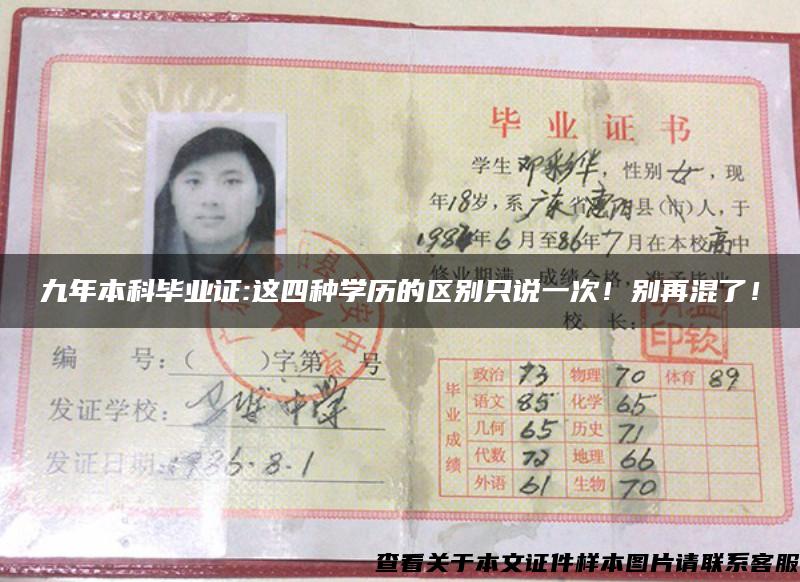 毕业证书
学生邓彩华，性别女，现
年18岁，系广东省惠阳县（市）人，于
1984年6月至86年7月在本校高中
修业期满，成绩合格，准予毕业
九年本科毕业证:这四种学历的区别只说一次！别再混了！
校 长：
编 号：（ ）字第 号
发证学校： 中学
发证日期：1986.8.1
毕业成绩
政治 73 物理 70 体育 89
语文 85 化学 65
几何 65 历史 71
代数 72 地理 66
外语 61 生物 70
查看关于本文证件样本图片请联系客服